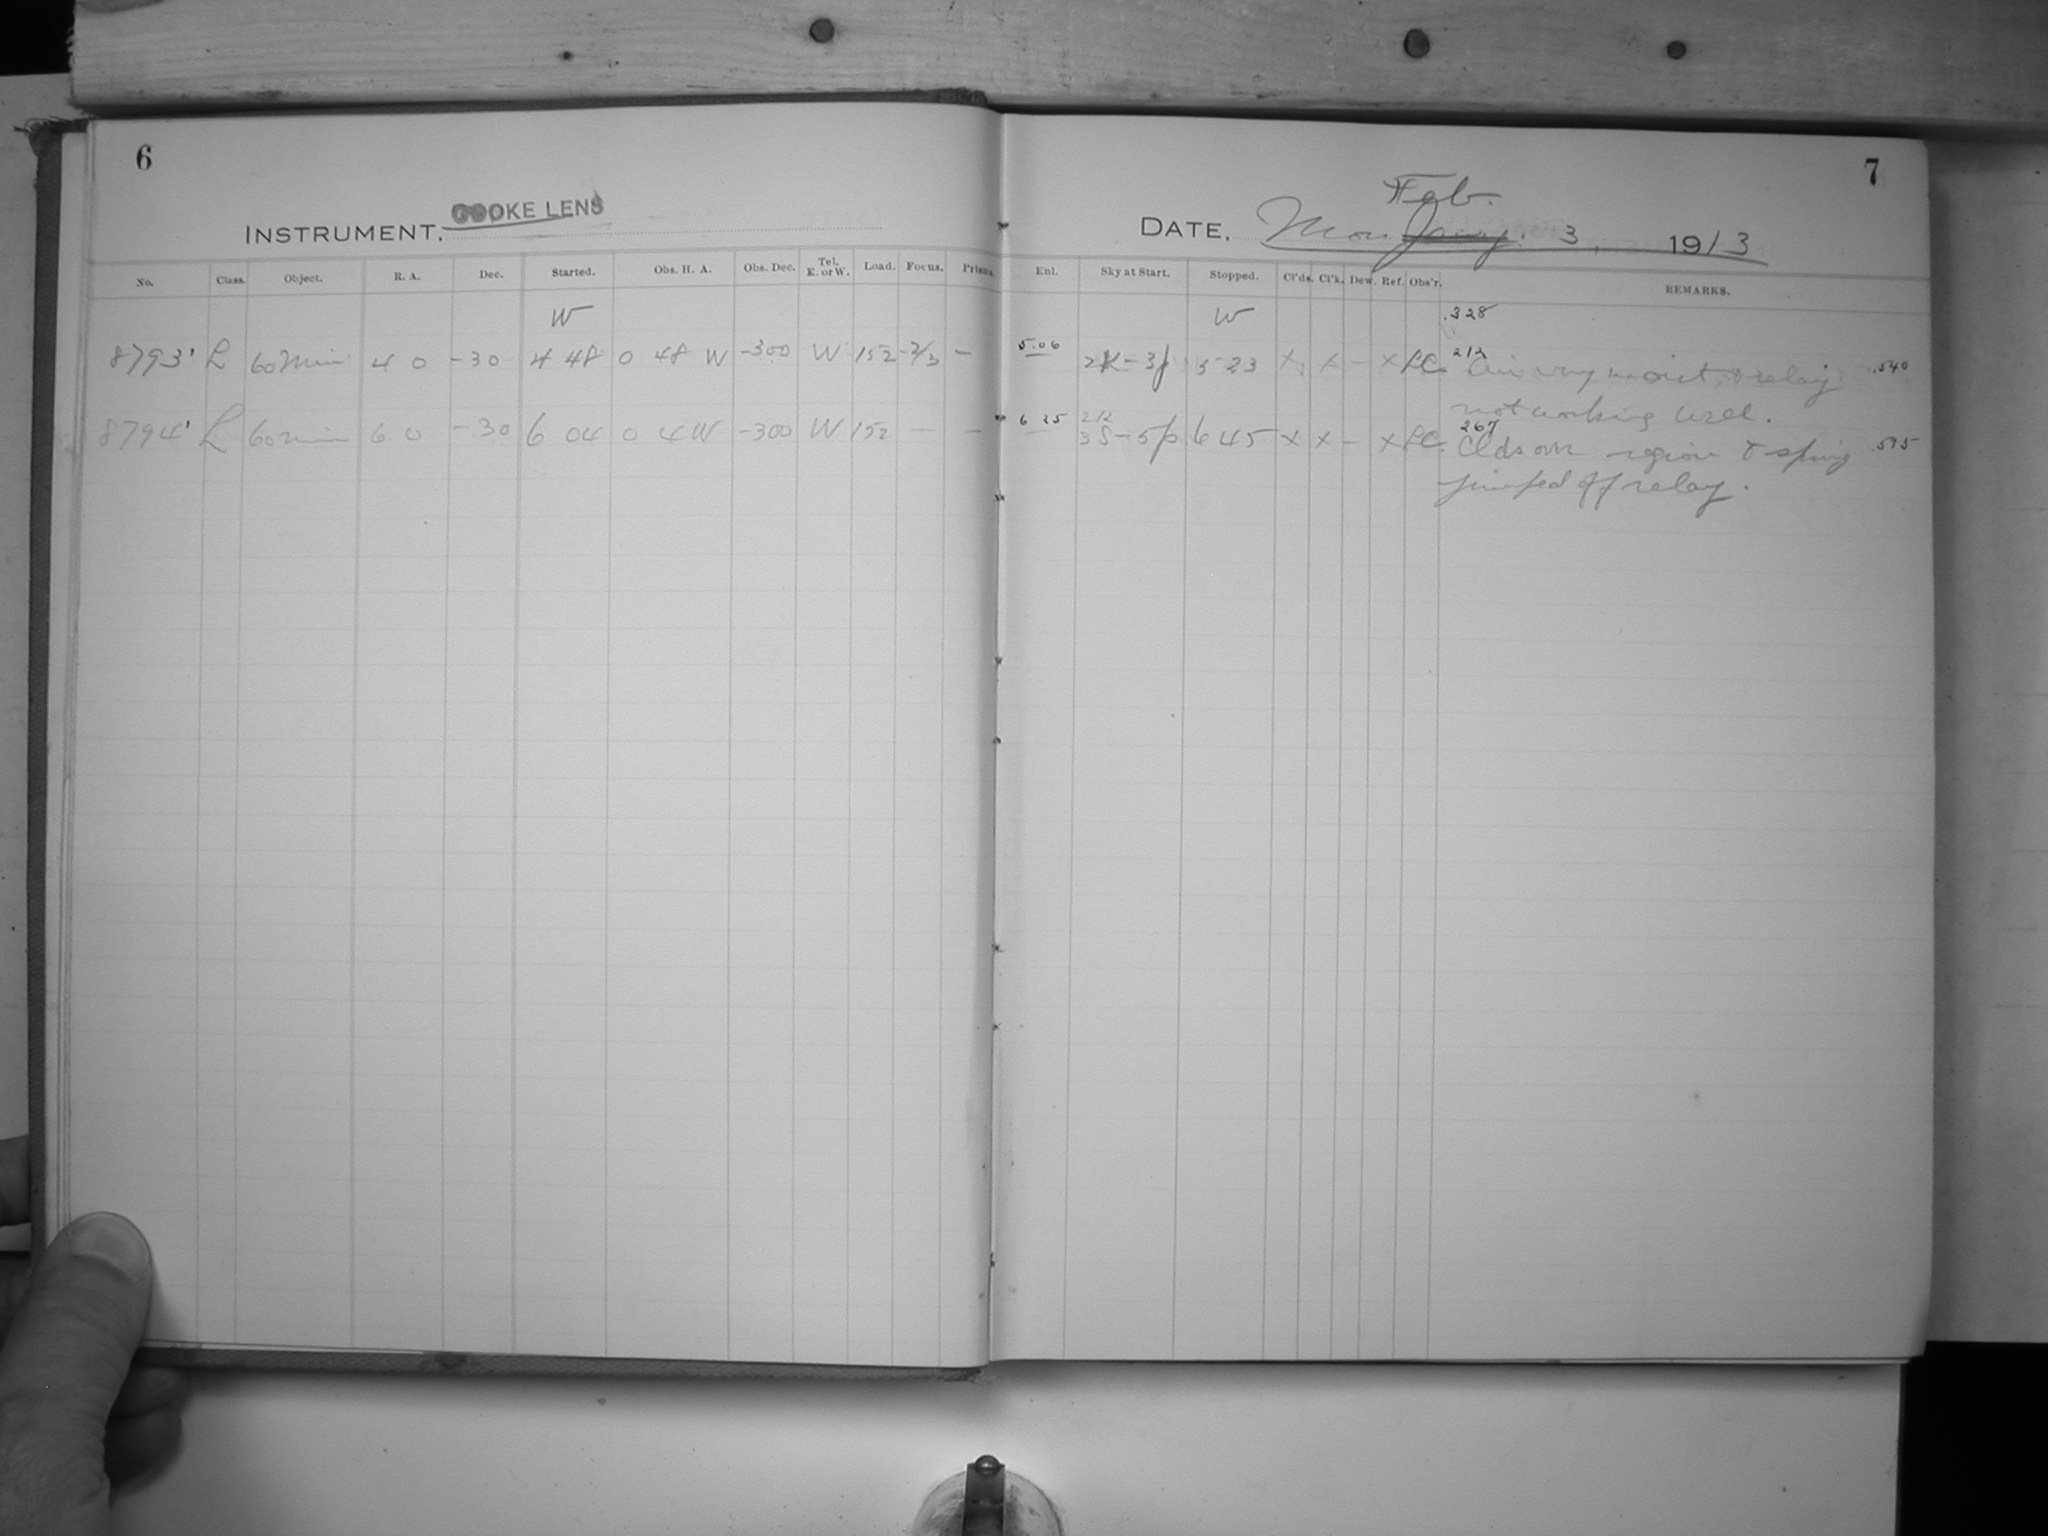 6
INSTRUMENT. COOKE LENS
No. Class. Object. R. A. Dec. Started. Obs. H. A. Obs. Dec. Tel. E. or W. Load. Focus. Prisms.
W
8793' L 60 min 4 0 -30 4 48 0 48 W -300 W 152 -2/3 -
8794' L 60 min 6 0 -30 6 04 0 4 W -300 W 152 - -
7
Feb.
DATE. Mon. 3, 1913
Enl. Sky at Start. Stopped. Cl'ds. Cl'k. Dew. Ref. Obs'r. REMARKS.
W .328
212
5.06 2K-3p 5 23 X X - X LC Air very moist & relay .540
not working well.
212 267
6 25 3 S-5p 6 45 X X - X LC Clds over region & spring .595
jumped off relay.